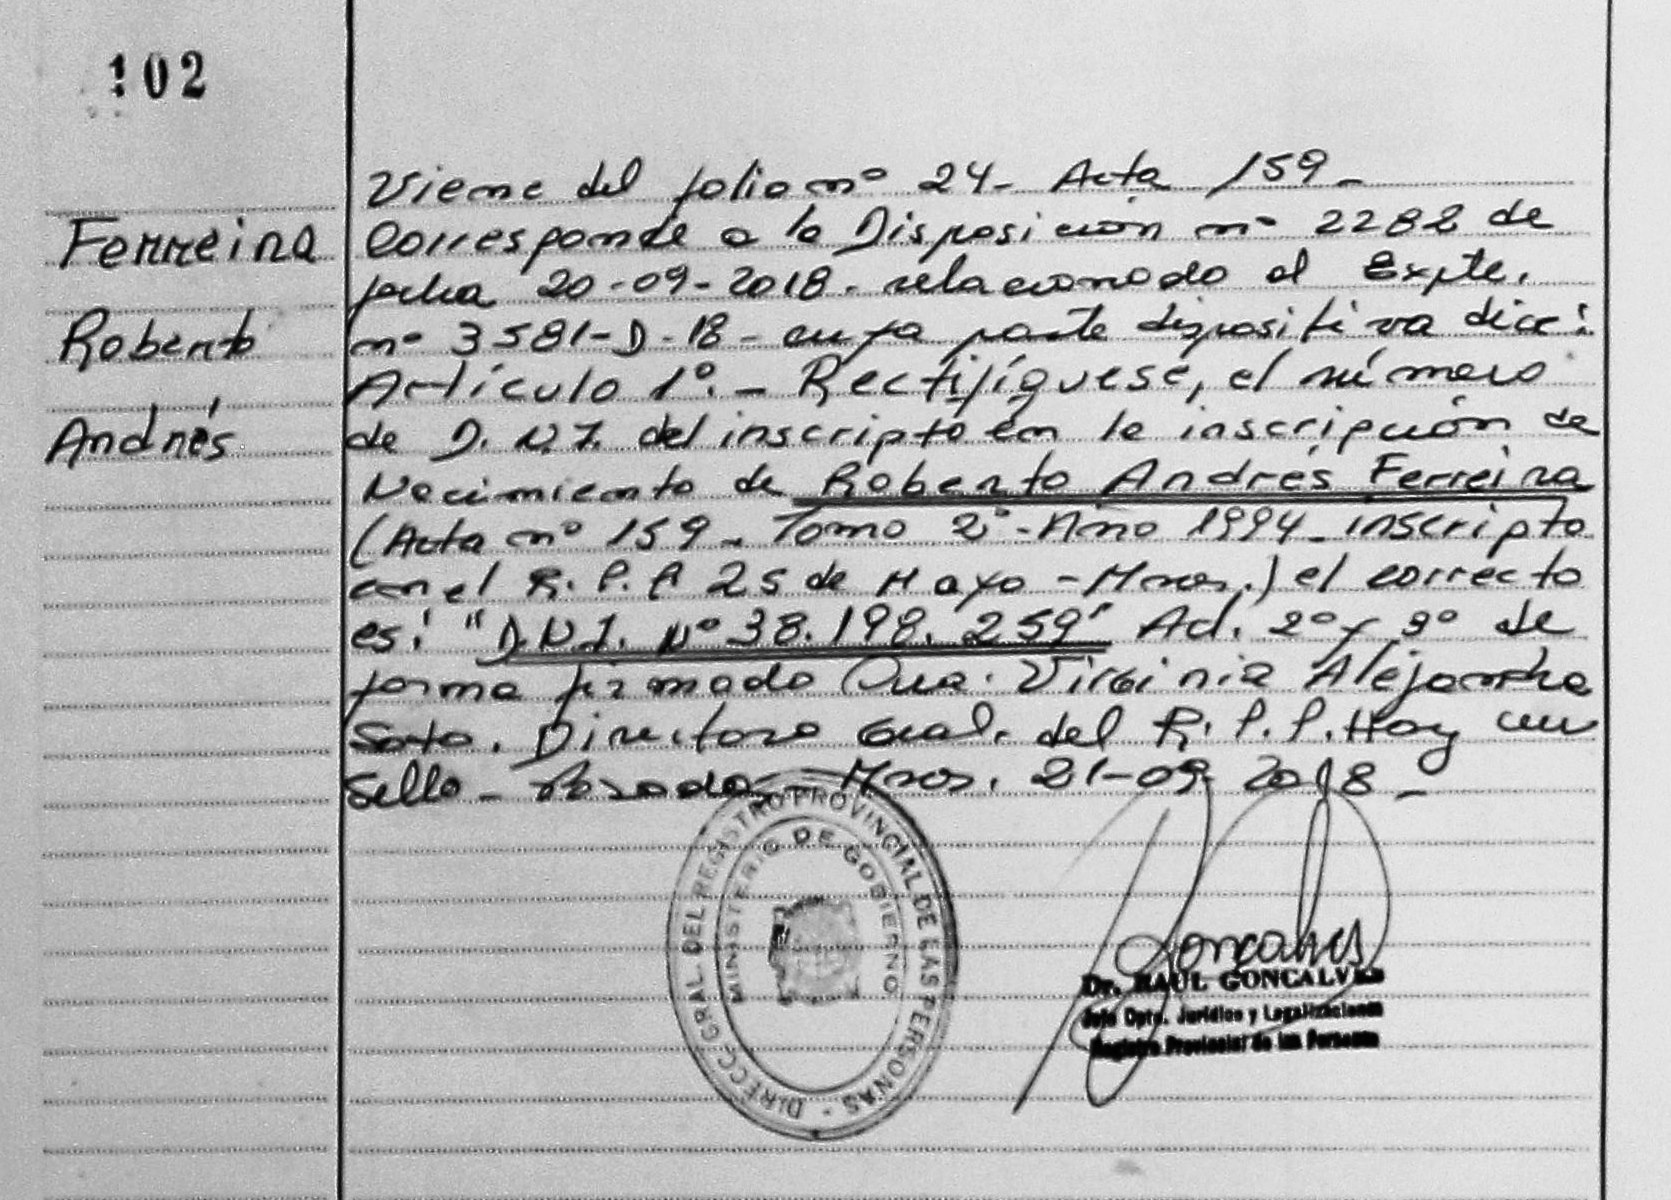 102
Ferreira
Roberto
Andrés
Viene del folio nº 24- Acta 159-
Corresponde a la Disposición nº 2282 de
fecha 20-09-2018- relacionado al Expte.
nº 3581-D-18- cuya parte dispositiva dice:
Artículo 1º.- Rectifíquese, el número
de D.N.I. del inscripto en la inscripción de
Nacimiento de Roberto Andrés Ferreira
(Acta nº 159- Tomo 2º-Año 1994- inscripto
en el R.P.P 25 de Mayo - Mnes.) el correcto
es: "D.N.I. Nº 38.198.259" Ad. 2º y 3º de
forma firmado Dra. Virginia Alejandra
Soto. Directora Gral. del R.P.P. Hay un
Sello- Posadas- Mnes. 21-09-2018-
DIRECC. GRAL. DEL REGISTRO PROVINCIAL DE LAS PERSONAS -
MINISTERIO DE GOBIERNO
Goncalves
Dr. RAUL GONCALVES
Jefe Dpto. Jurídico y Legalizaciones
Registro Provincial de las Personas